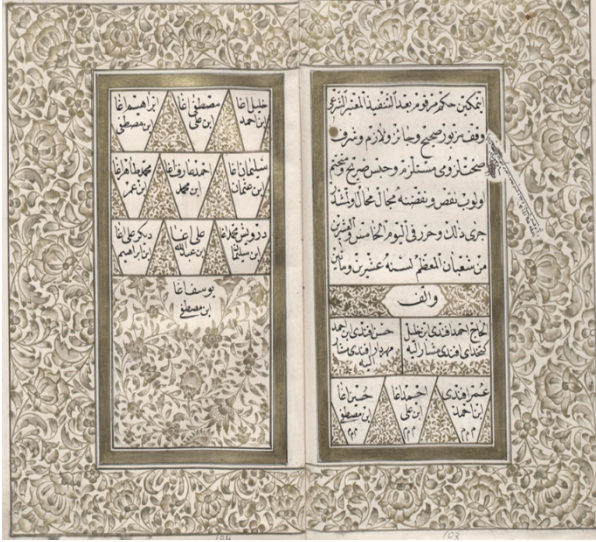 ايتمكين حكم مرقوم بعد التنفيذ المعتبر الشرعى
وقف مزبور صحيح وجائز ولازم وشرف
صحتلزومى مستلزم وحبس صريح وصحتم
اولوب نقض ونقضينه مجال محال ولمشد
جرى ذلك وحرر فى اليوم الخامس والعشرين
من شعبان المعظم لسنة عشرين ومائتين
والف
الحاج احمد افندى بن خليل
كتخداى افندى مشار اليه
حسن افندى بن احمد
مهردار افندى مشار اليه
عمر افندى ابن احمد
احمد اغا ابن على
حسين اغا ابن مصطفى
خليل اغا ابن احمد
مصطفى اغا ابن على
ابراهيم اغا ابن مصطفى
سليمان اغا ابن عثمان
احمد عارف اغا ابن محمد
محمد طاهر اغا ابن عمر
درويش محمد اغا ابن سليمان
على اغا ابن عبد الله
ديكر على اغا ابن ابراهيم
يوسف اغا
ابن مصطفى
103
104